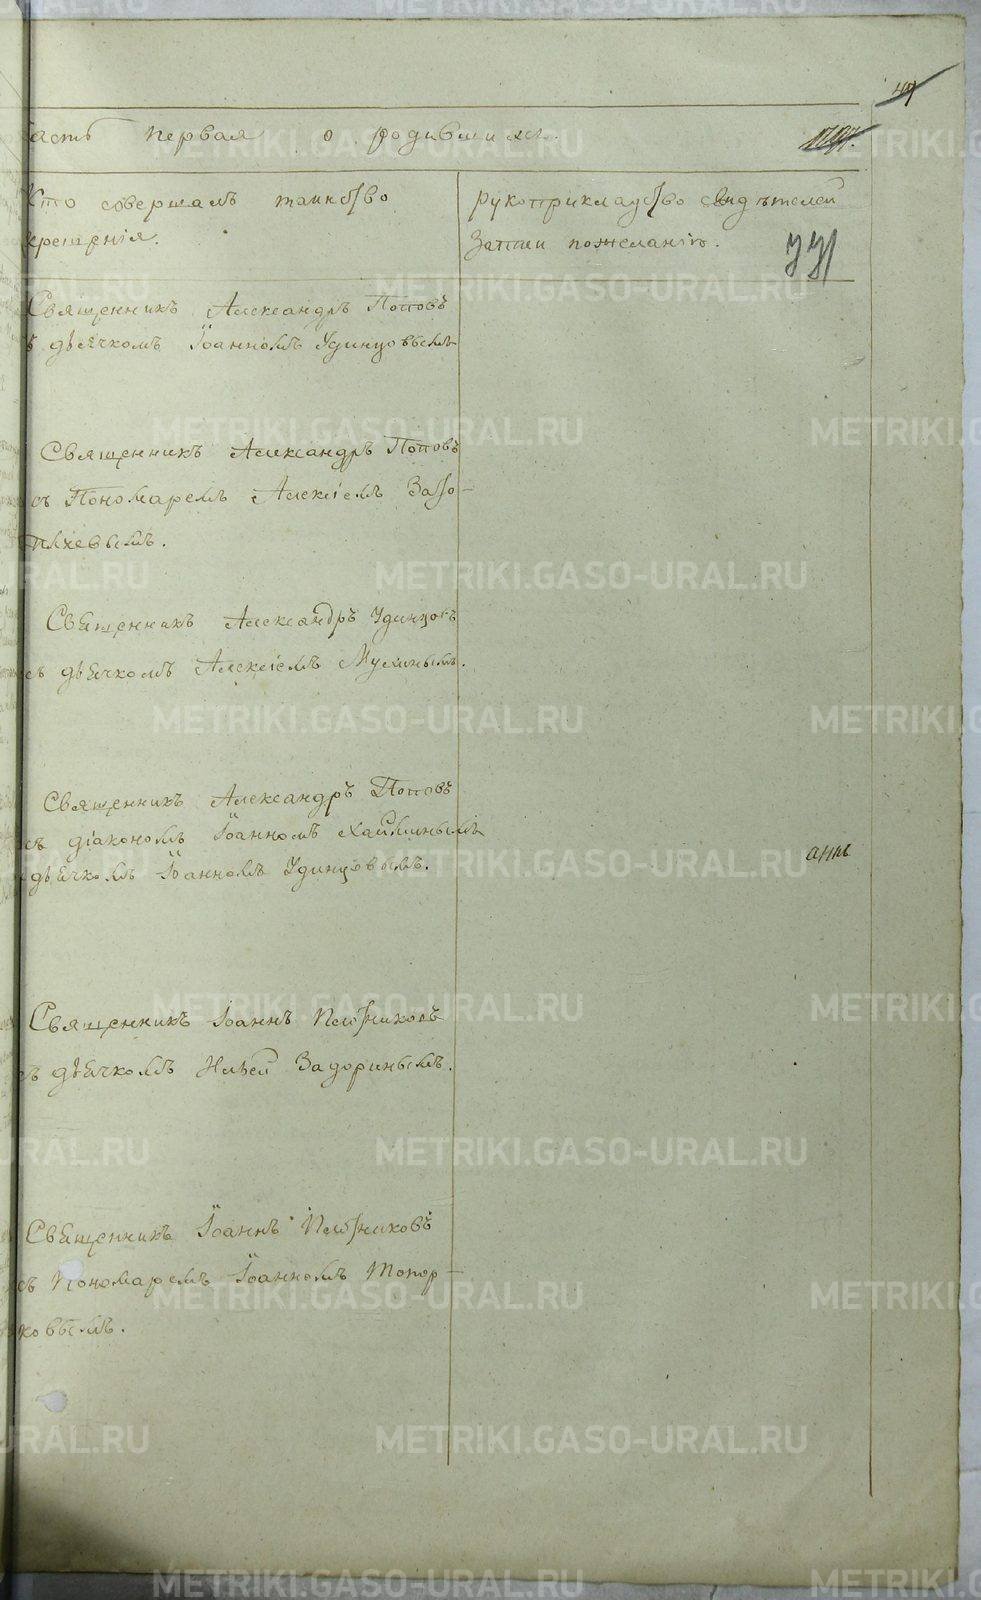 асть первая о родившихся.
Кто совершалъ таинство
крещенія.
рукоприкладство свидѣтелей
записи пожеланію.
Священникъ Александръ Поповъ
съ дьячкомъ Іоанномъ Удинцовымъ
Священникъ Александръ Поповъ
съ Пономаремъ Алексіемъ Зато-
пляевымъ.
Священникъ Александръ Удинцовъ
съ дьячкомъ Алексіемъ Мусиным.
Священникъ Александръ Поповъ
съ діакономъ Іоанномъ
дьячкомъ Іоанномъ Удинцовымъ.
Священникъ Іоаннъ Плотниковъ
съ дьячкомъ Ильей Задоринымъ.
Священникъ Іоаннъ Плотниковъ
съ Пономаремъ Іоанномъ Топор-
ковымъ.
METRIKI.GASO-URAL.RU